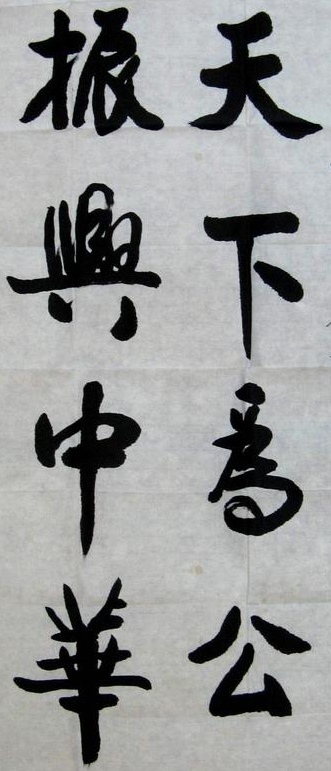 天下爲公
振興中華